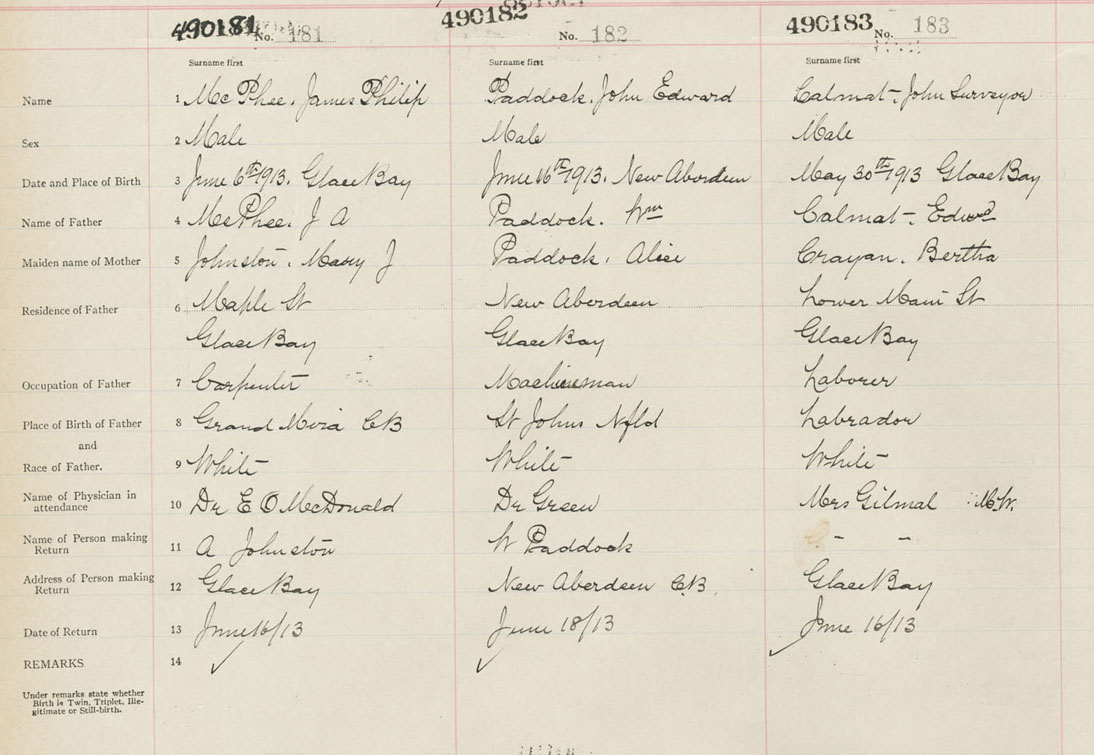 490181 No. 181 490182 No. 182 490183 No. 183
Surname first Surname first Surname first
Name 1 McPhee. James Philip Paddock. John Edward Calmat. John Surveyor
Sex 2 Male Male Male
Date and Place of Birth 3 June 6th 1913. Glace Bay June 16th 1913. New Aberdeen May 30th 1913 Glace Bay
Name of Father 4 McPhee. J A Paddock. Wm Calmat. Edwd
Maiden name of Mother 5 Johnston. J Paddock. Alice Crayan. Bertha
Residence of Father 6 Maple St New Aberdeen Lower Main St
Glace Bay Glace Bay Glace Bay
Occupation of Father 7 Carpenter Machineman Laborer
Place of Birth of Father 8 Grand Mira CB St Johns Nfld Labrador
and
Race of Father. 9 White White White
Name of Physician in
attendance 10 Dr E O McDonald Dr Green Mrs Gilmal M.W.
Name of Person making
Return 11 A Johnston W Paddock " - -
Address of Person making
Return 12 Glace Bay New Aberdeen C.B. Glace Bay
Date of Return 13 June 16/13 June 18/13 June 16/13
REMARKS 14
Under remarks state whether
Birth is Twin, Triplet, Ille-
gitimate or Still-birth.